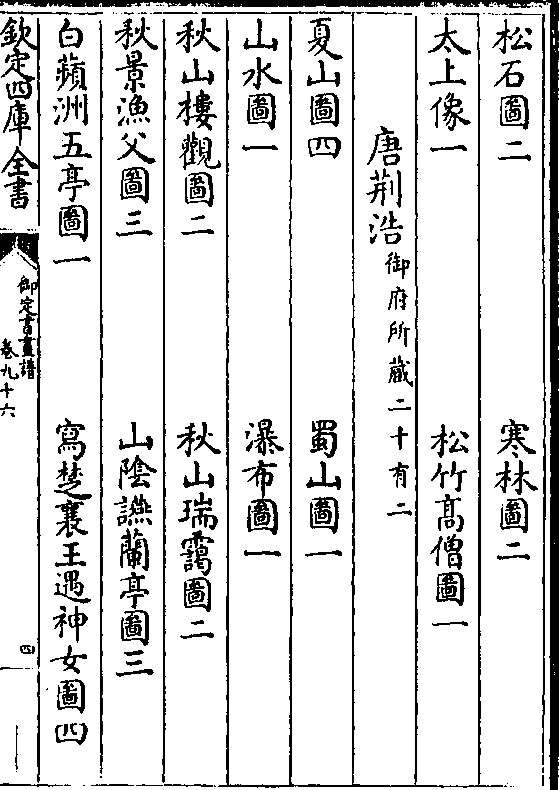 松石圖二　寒林圖二
太上像一　松竹髙僧圖一
唐荆浩御府所藏二十有二
夏山圖四　蜀山圖一
山水圖一　瀑布圖一
秋山樓觀圖二　秋山瑞靄圖二
秋景漁父圖三　山陰讌蘭亭圖三
白蘋洲五亭圖一　寫楚襄王遇神女圖四
欽定四庫全書
御定書畫譜
卷九十六
四